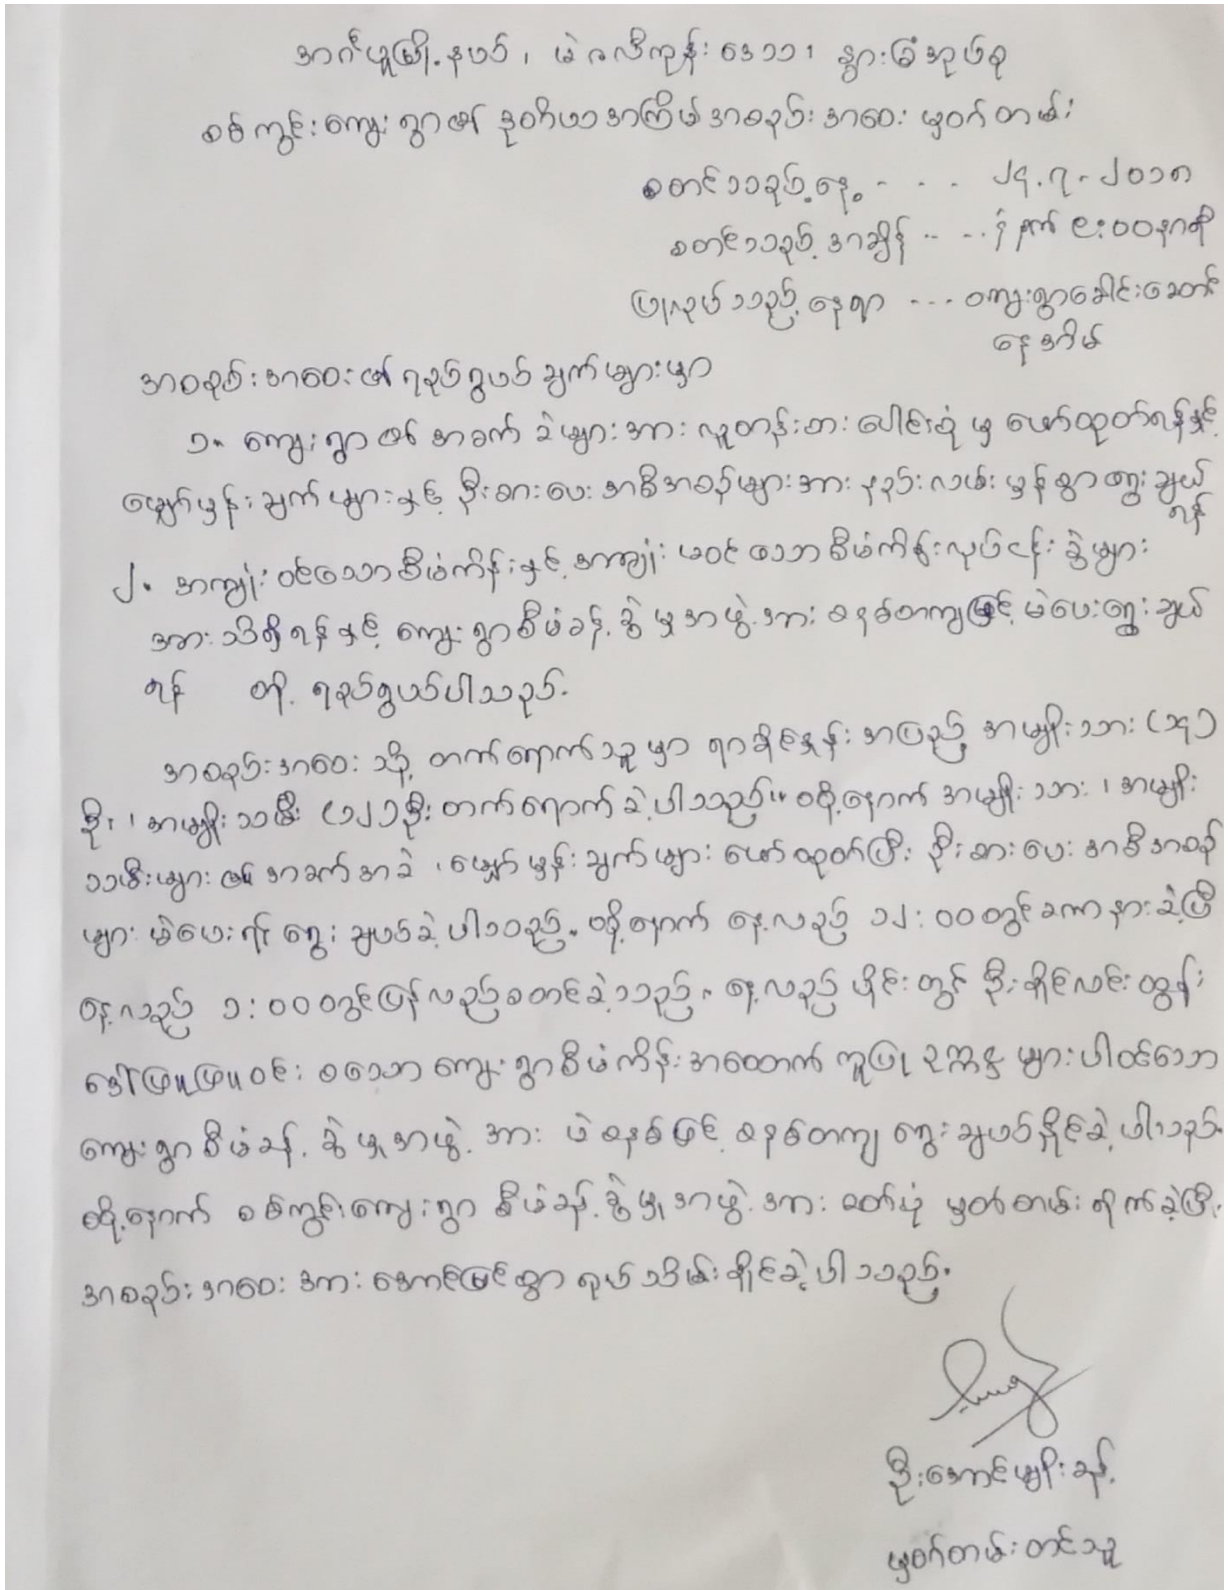 အင်္ဂပူမြို့နယ်၊ မဲဇလီကုန်းဒေသ၊ နွားခြံအုပ်စု
စစ်ကွင်းကျေးရွာ၏ ဒုတိယအကြိမ်အစည်းအဝေး မှတ်တမ်း
စတင်သည့်နေ့ - - - ၂၄.၇.၂၀၁၈
စတင်သည့်အချိန် - - - နံနက် ၉:၀၀နာရီ
ပြုလုပ်သည့်နေရာ - - - ကျေးရွာခေါင်းဆောင်
နေအိမ်
အစည်းအဝေး၏ ရည်ရွယ်ချက်များမှာ
၁။ ကျေးရွာ၏ အခက်ခဲများအား လူတန်းစားပေါင်းစုံမှ ဖော်ထုတ်ရန်နှင့်
မျှော်မှန်းချက်များနှင့် ဦးစားပေးအစီအစဉ်များအား နည်းလမ်းမှန်စွာရွေးချယ်
ရန်
၂။ အကျုံးဝင်သောစီမံကိန်းနှင့် အကျုံးမဝင်သောစီမံကိန်းလုပ်ငန်းခွဲများ
အား သိရှိရန်နှင့် ကျေးရွာစီမံခန့်ခွဲမှုအဖွဲ့အား စနစ်တကျဖြင့် မဲပေးရွေးချယ်
ရန် တို့ ရည်ရွယ်ပါသည်။
အစည်းအဝေးသို့ တက်ရောက်သူမှာ ရာခိုင်နှုန်းအပြည့် အမျိုးသား (၁၄)
ဦး၊ အမျိုးသမီး (၁၂)ဦး တက်ရောက်ခဲ့ပါသည်။ ထို့နောက် အမျိုးသား၊ အမျိုး
သမီးများ၏ အခက်အခဲ၊ မျှော်မှန်းချက်များ ဖော်ထုတ်ပြီး ဦးစားပေးအစီအစဉ်
များ မဲပေး၍ ရွေးချယ်ခဲ့ပါသည်။ ထို့နောက် နေ့လည် ၁၂:၀၀တွင် ခေတ္တနားခဲ့ပြီး
နေ့လည် ၁:၀၀တွင်ပြန်လည်စတင်ခဲ့သည်။ နေ့လည်ပိုင်းတွင် ဦးရှိုင်လင်းထွန်း
ဒေါ်ဖြူဖြူဝင်း စသောကျေးရွာစီမံကိန်းအထောက်ကူပြုဥက္ကဋ္ဌများပါဝင်သော
ကျေးရွာစီမံခန့်ခွဲမှုအဖွဲ့အား မဲစနစ်ဖြင့် စနစ်တကျ ရွေးချယ်နိုင်ခဲ့ပါသည်။
ထို့နောက် စစ်ကွင်းကျေးရွာ စီမံခန့်ခွဲမှုအဖွဲ့အား ဓာတ်ပုံမှတ်တမ်းရိုက်ခဲ့ပြီး
အစည်းအဝေးအား အောင်မြင်စွာ ရုပ်သိမ်းနိုင်ခဲ့ပါသည်။
ဦးအောင်မျိုးခန့်
မှတ်တမ်းတင်သူ